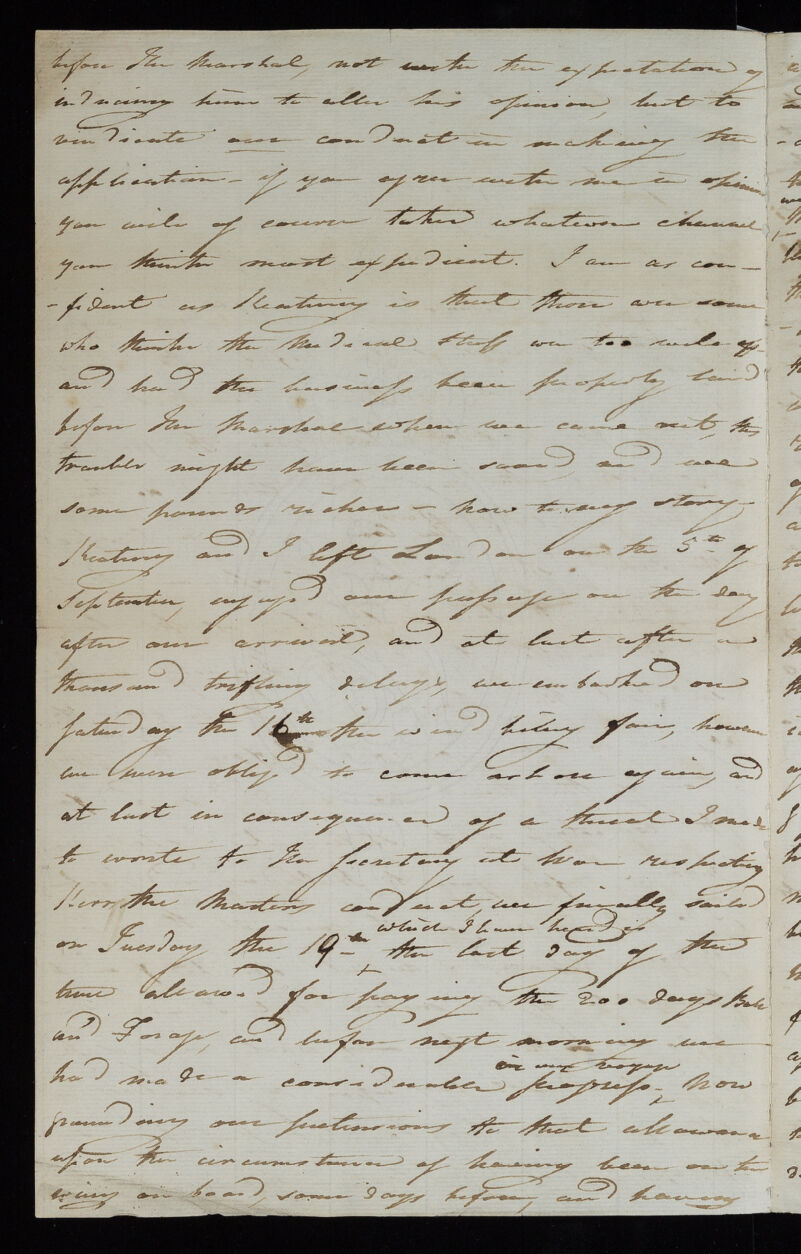 before the Marshal, not with the expectation of
inducing him to alter his opinion, but to
vindicate our conduct in making the
application - if you agree with me in opinion
you will of course take whatever channel
you think most expedient. I am as con-
-fident as Keating is that there are some
who think the Medical Staff are too well off
and had the business been properly laid
before the Marshal when we came out, this
trouble might have been saved, and we
some pounds richer - now to my story
Keating and I left London on the 5th of
September, engaged our passage on the day
after our arrival, and at last after a
thousand trifling delays, we embarked on
Saturday the 16th the wind being fair, however
we were obliged to come ashore again, and
at last in consequence of a threat I made
to write to the Secretary at War respecting
Kerr the Masters conduct, we finally sailed
on Tuesday the 19th which I have heard is the last day of the
time allowed for paying the 200 days Bat
and Forage, and before next morning we
had made a considerable progress in our voyage. Now
grounding our pretensions to that allowance
upon the circumstance of having been on the
on board, some days before, and having